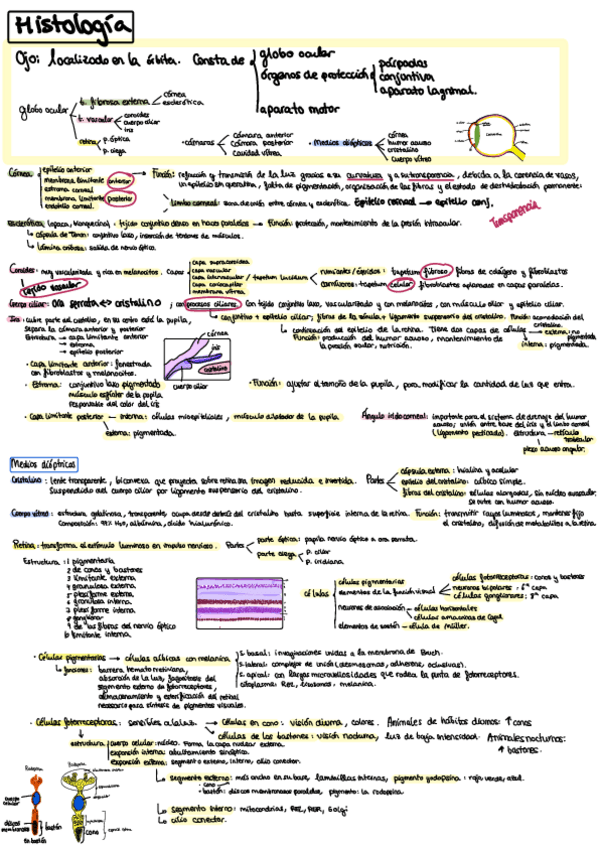 Histología
Ojo: localizado en la órbita. Consta de
globo ocular
órganos de protección
párpados
conjuntiva
aparato lagrimal.
aparato motor
globo ocular
t. fibrosa externa
córnea
esclerótica
t. vascular
coroides
cuerpo ciliar
iris
retina
p. óptica
p. ciega
cámaras
cámara anterior
cámara posterior
cavidad vítrea
Medios dióptricos
córnea
humor acuoso
cristalino
cuerpo vítreo
Córnea:
epitelio anterior
membrana limitante anterior
estroma corneal
membrana limitante posterior
endotelio corneal
Función: refracción y transmisión de la luz gracias a su curvatura y a su transparencia, debida a la carencia de vasos,
un epitelio sin queratina, falta de pigmentación, organización de las fibras y el estado de deshidratación permanente.
limbo corneal: zona de unión entre córnea y esclerótica. Epitelio corneal → epitelio conj.
Transparencia
Esclerótica (opaca, blanquecina): tejido conjuntivo denso en haces paralelos → Función: protección, mantenimiento de la presión intraocular.
cápsula de Tenon: conjuntivo laxo, inserción de tendones de músculos.
Lámina cribosa: salida de nervio óptico.
Coroides: muy vascularizada y rica en melanocitos. Capas
capa supracoroidea
capa vascular
capa tapetum lucidum
capa coriocapilar
membrana vítrea
rumiantes/équidos: tapetum fibroso fibras de colágeno y fibroblastos
carnívoros: tapetum celular fibroblastos aplanados en capas paralelas.
tejido vascular
Cuerpo ciliar: ora serrata ↔ cristalino; con procesos ciliares. Con tejido conjuntivo laxo, vascularizado y con melanocitos, con músculo ciliar y epitelio ciliar.
conjuntivo + epitelio ciliar; fibras de la zónula + ligamento suspensorio del cristalino. Función: acomodación del cristalino.
continuación del epitelio de la retina. Tiene dos capas de células
externa: no pigmentada
interna: pigmentada.
Función: producción del humor acuoso, mantenimiento de
la presión ocular, nutrición.
Iris: cubre parte del cristalino, en su centro está la pupila,
separa la cámara anterior y posterior
Estructura → capa limitante anterior
→ estroma
→ epitelio posterior
córnea
iris
cristalino
cuerpo ciliar
capa limitante anterior: fenestrada
con fibroblastos y melanocitos.
Estroma: conjuntivo laxo pigmentado
músculo esfínter de la pupila
responsable del color del iris
Función: ajustar el tamaño de la pupila, para modificar la cantidad de luz que entra.
Capa limitante posterior → interna: células mioepiteliales, músculo dilatador de la pupila.
externa: pigmentada.
Ángulo iridocorneal: importante para el sistema de drenaje del humor
acuoso; unión entre base del iris y el limbo corneal
(ligamento pectinado). Estructura → retículo trabecular
plexo acuoso angular.
Medios dióptricos
Cristalino: lente transparente, biconvexa que proyecta sobre retina una imagen reducida e invertida.
Suspendido del cuerpo ciliar por ligamento suspensorio del cristalino.
Partes
cápsula externa: hialina y acelular
epitelio del cristalino: cúbico simple.
fibras del cristalino: células alargadas, sin núcleo ni vascular.
Cuerpo vítreo: estructura gelatinosa, transparente, ocupa desde detrás del cristalino hasta superficie interna de la retina. Función: transmitir rayos luminosos, mantener fijo
Composición: 99% H₂O, albúmina, ácido hialurónico.
el cristalino, difusión de metabolitos a la retina.
Retina: transforma el estímulo luminoso en impulso nervioso. Partes
parte óptica: papila nervio óptico a ora serrata.
parte ciega
p. ciliar
p. iridiana.
Estructura: 1 pigmentaria
2 de conos y bastones
3 limitante externa
4 granulosa externa
5 plexiforme externa
6 granulosa interna
7 plexiforme interna
ganglionar
9 de las fibras del nervio óptico
limitante interna.
células
células pigmentarias
elementos de la función visual
células fotorreceptoras: conos y bastones
neuronas bipolares: 6ª capa
células ganglionares: 8ª capa
neuronas de asociación
células horizontales
células amacrinas de Cajal
elementos de sostén → célula de Müller.
Células pigmentarias → células cúbicas con melanina.
s. basal: invaginaciones unidas a la membrana de Bruch.
s. lateral: complejos de unión (desmosomas, adherens, ocluyentes).
s. apical: con largas microvellosidades que rodea la punta de fotorreceptores.
citoplasma: REL, lisosomas, melanina.
funciones: barrera hematorretiniana,
absorción de la luz, fagocitosis del
segmento externo de fotorreceptores,
almacenamiento y esterificación del retinol
necesario para síntesis de pigmentos visuales.
Células fotorreceptoras: sensibles a la luz
Células en cono: visión diurna, colores. Animales de hábitos diurnos: ↑ conos
células de los bastones: visión nocturna, luz de baja intensidad. Animales nocturnos:
↑ bastones.
estructura
cuerpo celular: núcleo. Forma la capa nuclear externa.
expansión interna: abultamiento sináptico.
expansión externa: segmento externo, interno, cilio conector.
segmento externo: más ancho en su base, laminillas internas, pigmento yodopsina: rojo, verde, azul.
bastón: discos membranosos paralelos, pigmento: la rodopsina.
segmento interno: mitocondrias, REL, RER, Golgi
cilio conector.
cuerpo celular
discos membranosos
bastón
en bastón
cono